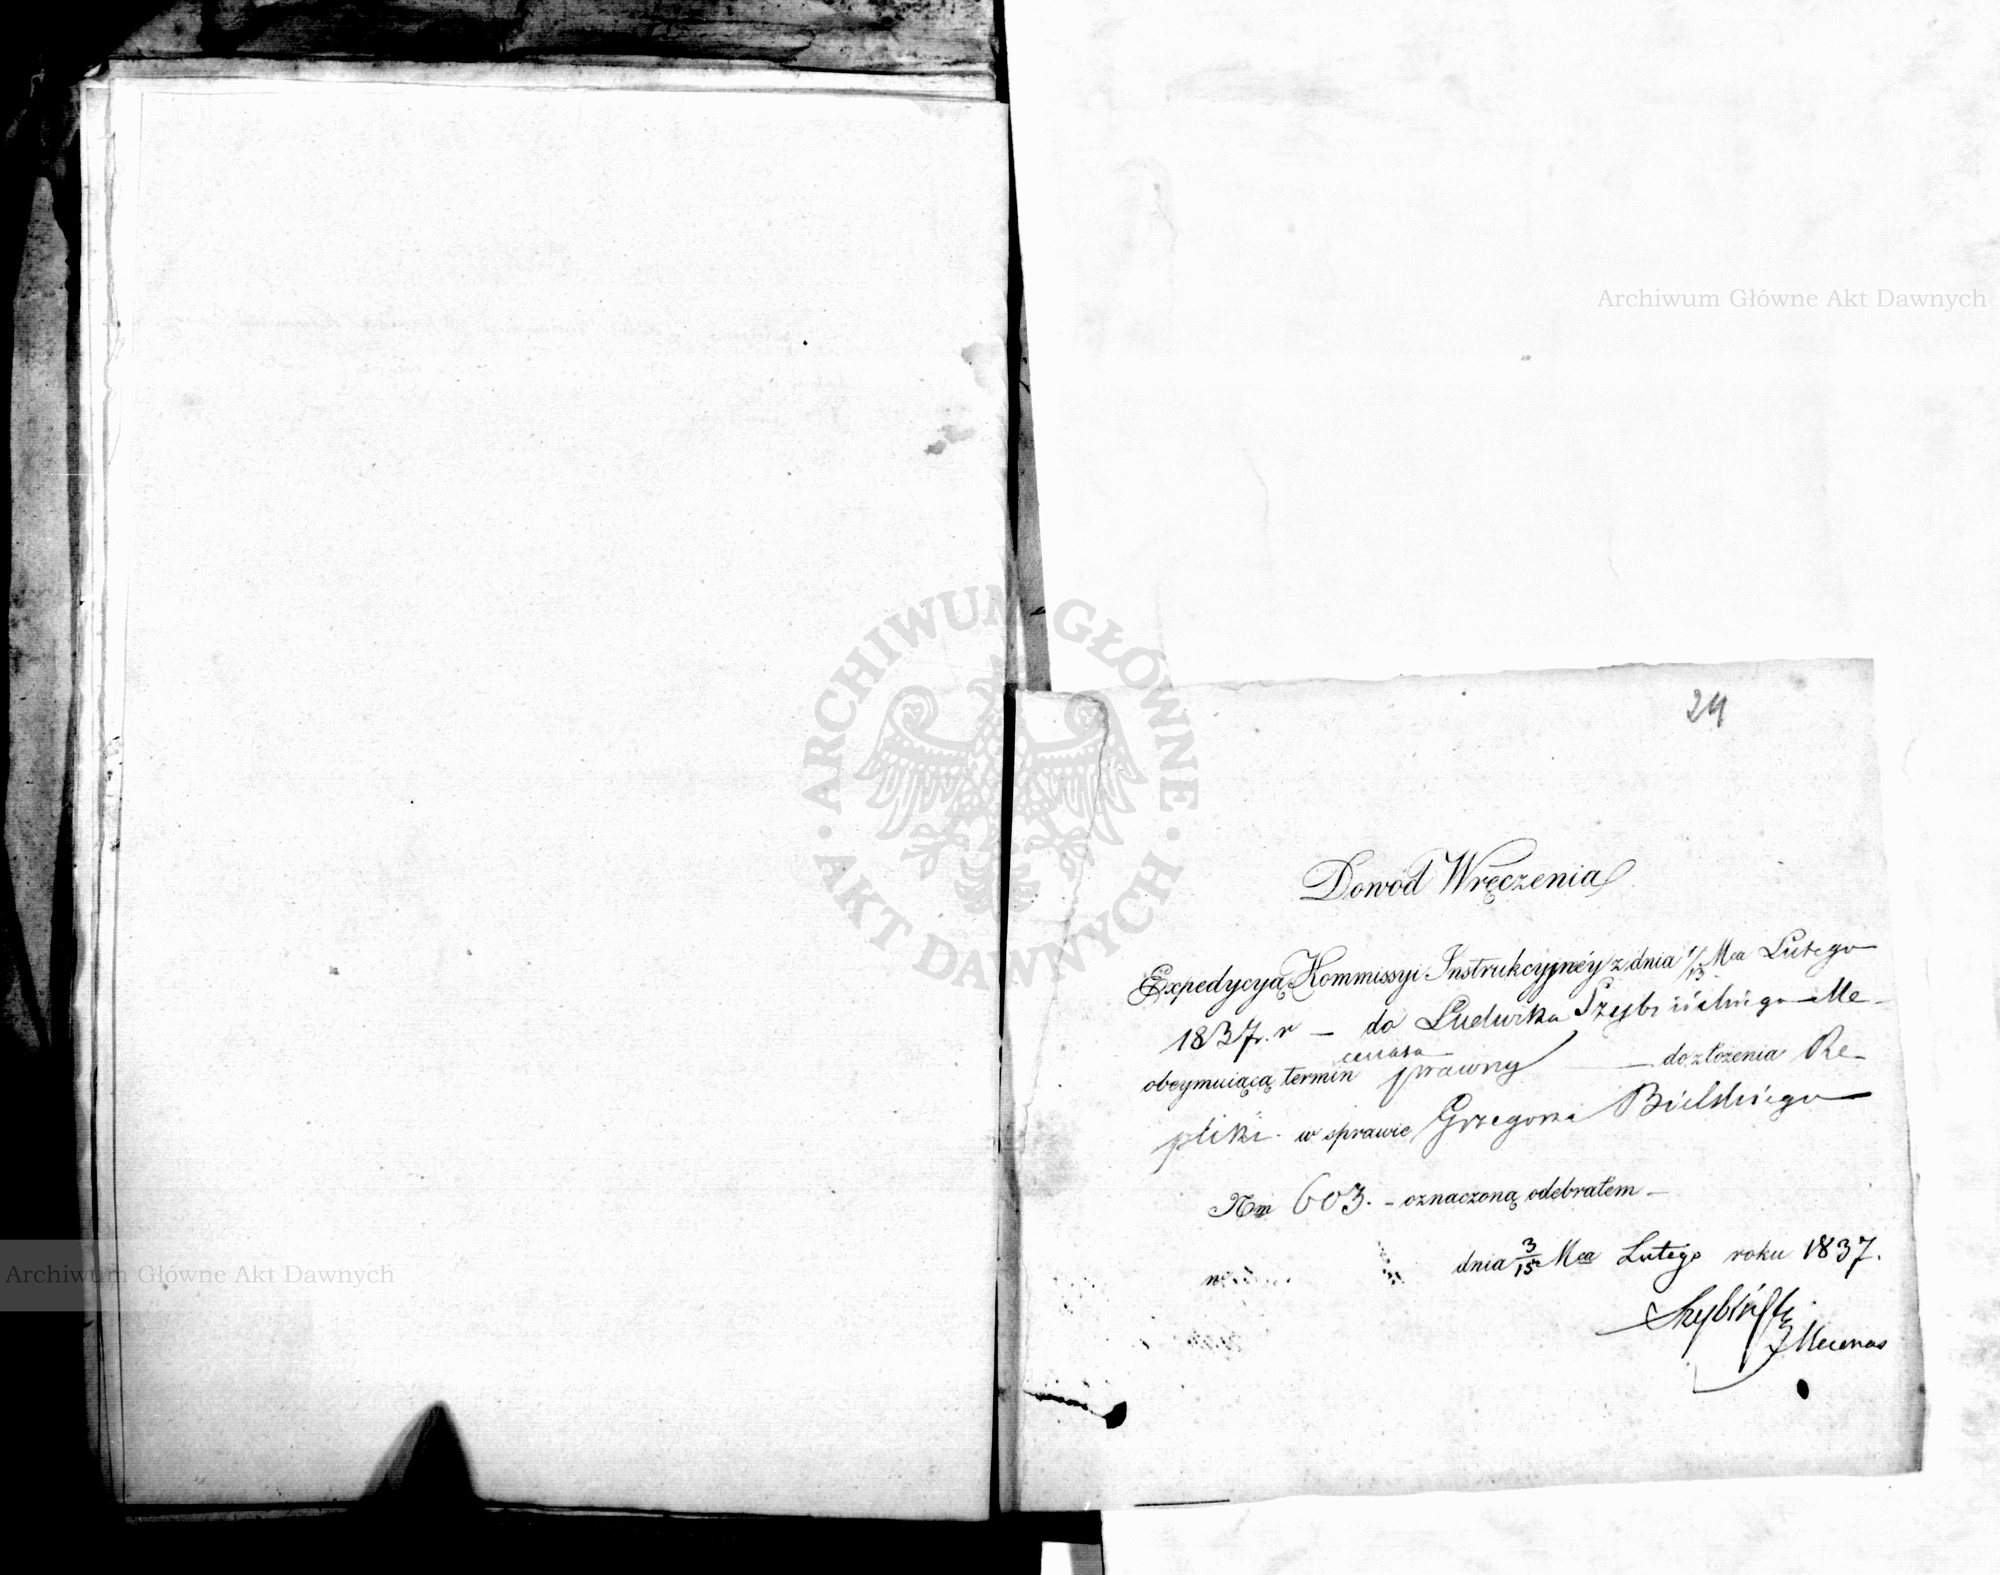 Archiwum Główne Akt Dawnych
ARCHIWUM GŁÓWNE · AKT DAWNYCH ·
24
Dowód Wręczenia
Expedycyą Kommissyi Instrukcyjnéy z dnia 1/13 Mca Lutego
1837. r — do Ludwika Szybińskiego Me-
cenasa
obeymuiącą termin prawny — do złożenia Re-
pliki. w sprawie Grzegorza Bielskiego
Nm 603. - oznaczoną odebrałem —
dnia 3/15 Mca Lutego roku 1837.
Szybiński
Mecenas
Archiwum Główne Akt Dawnych